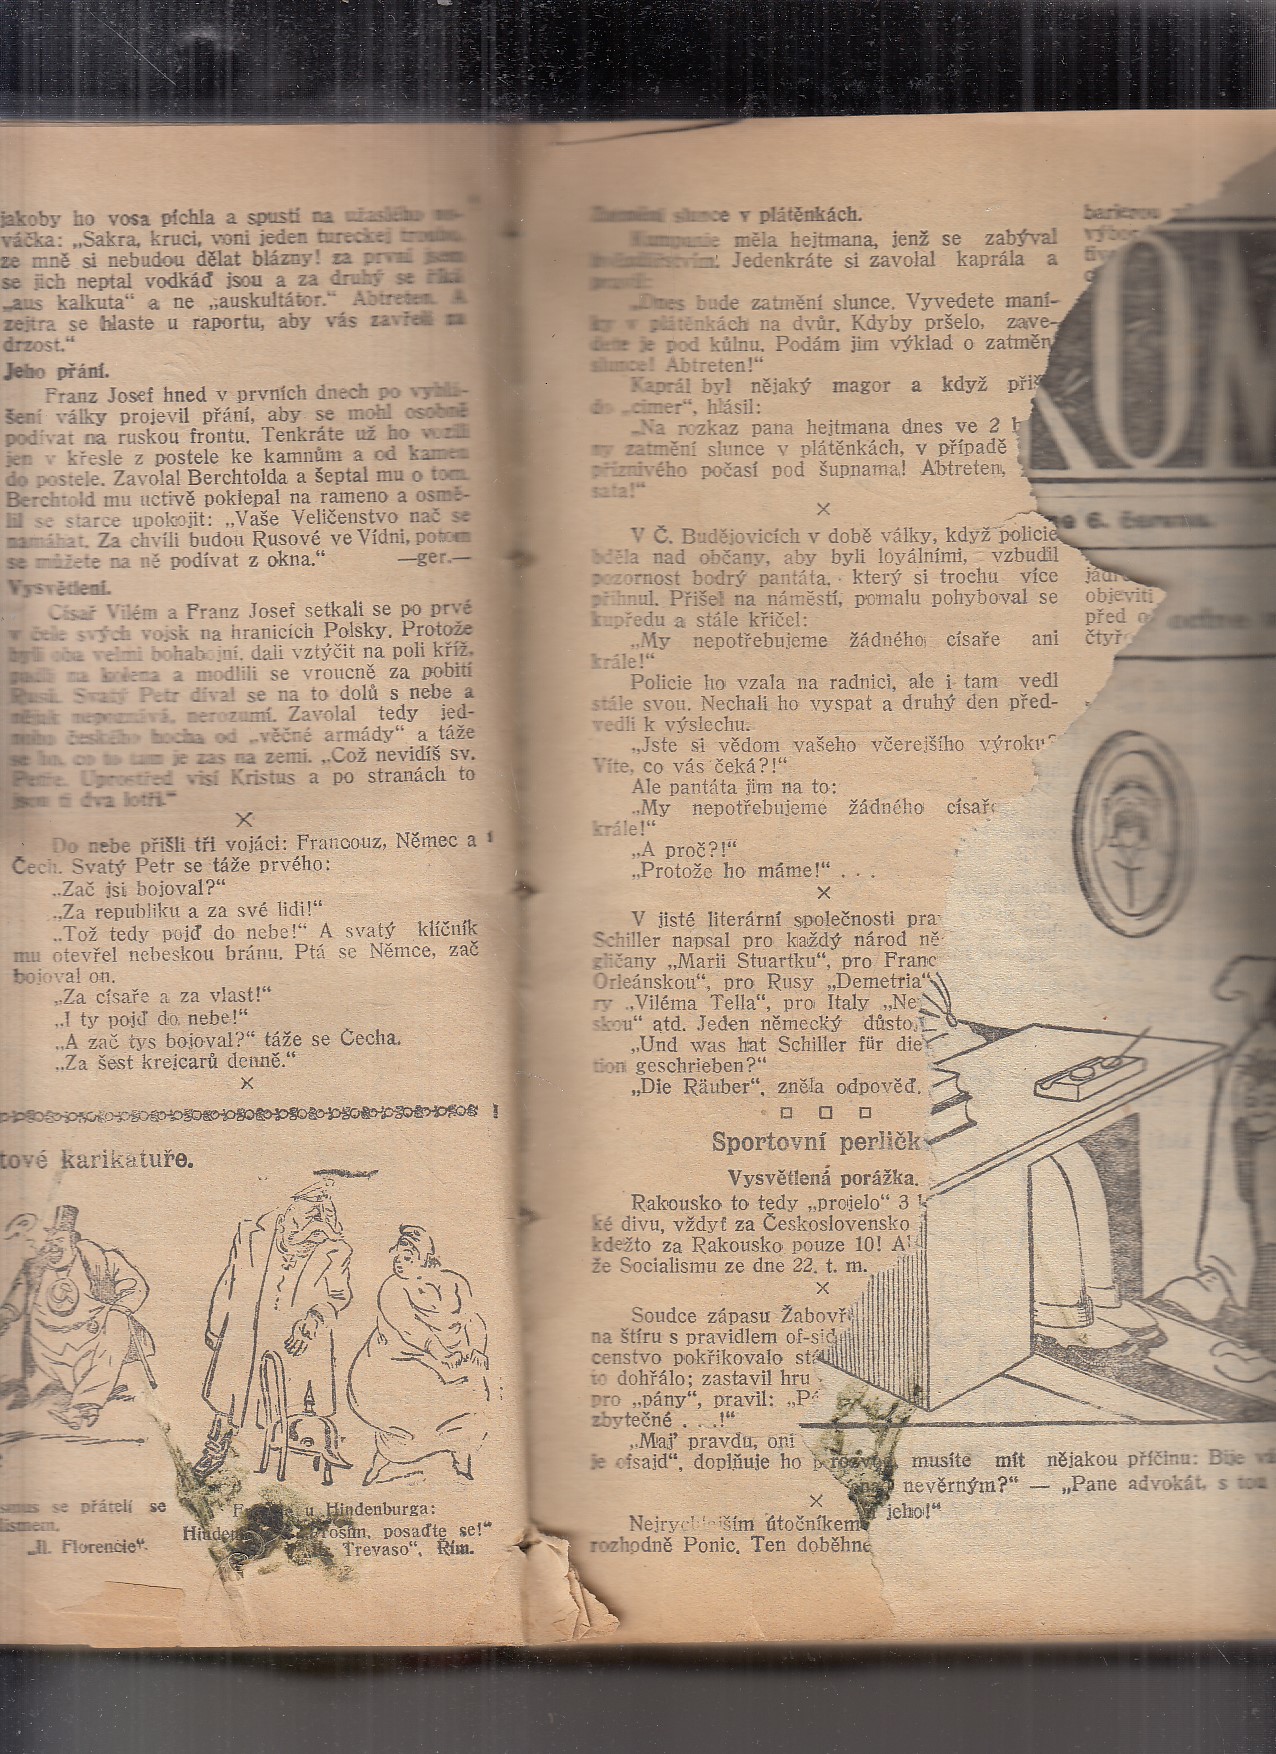 jakoby ho vosa píchla a spustí na užaslého no-
váčka: „Sakra, kruci, voni jeden tureckej troubo,
ze mně si nebudou dělat blázny! za první jsem
se jich neptal vodkáď jsou a za druhý se říká
„aus kalkuta“ a ne „auskultátor.“ Abtreten. A
zejtra se hlaste u raportu, aby vás zavřeli za
drzost.“
Jeho přání.
Franz Josef hned v prvních dnech po vyhlá-
šení války projevil přání, aby se mohl osobně
podívat na ruskou frontu. Tenkráte už ho vozili
jen v křesle z postele ke kamnům a od kamen
do postele. Zavolal Berchtolda a šeptal mu o tom.
Berchtold mu uctivě poklepal na rameno a osmě-
lil se starce upokojit: „Vaše Veličenstvo nač se
namáhat. Za chvíli budou Rusové ve Vídni, potom
se můžete na ně podívat z okna.“ —ger.—
Vysvětlení.
Císař Vilém a Franz Josef setkali se po prvé
v čele svých vojsk na hranicích Polsky. Protože
byli oba velmi bohabojní, dali vztýčit na poli kříž,
padli na kolena a modlili se vroucně za pobití
Rusů. Svatý Petr díval se na to dolů s nebe a
nějak nepoznává, nerozumí. Zavolal tedy jed-
noho českého hocha od „věčné armády“ a táže
se ho, co to tam je zas na zemi. „Což nevidíš sv.
Petře. Uprostřed visí Kristus a po stranách to
jsou ti dva lotři.“
×
Do nebe přišli tři vojáci: Francouz, Němec a
Čech. Svatý Petr se táže prvého:
„Zač jsi bojoval?“
„Za republiku a za své lidi!“
„Tož tedy pojď do nebe!“ A svatý klíčník
mu otevřel nebeskou bránu. Ptá se Němce, zač
bojoval on.
„Za císaře a za vlast!“
„I ty pojď do nebe!“
„A zač tys bojoval?“ táže se Čecha.
„Za šest krejcarů denně.“
×
tové karikatuře.
smus se přátelí se
lismem.
„Il. Florencie“.
u Hindenburga:
prosím, posaďte se!“
Trevaso“, Řím.
Zatmění slunce v plátěnkách.
Kumpanie měla hejtmana, jenž se zabýval
hvězdářstvím. Jedenkráte si zavolal kaprála a
pravil:
„Dnes bude zatmění slunce. Vyvedete maní-
ky v plátěnkách na dvůr. Kdyby pršelo, zave-
dete je pod kůlnu. Podám jim výklad o zatmění
slunce! Abtreten!“
Kaprál byl nějaký magor a když přiš
do „cimer“, hlásil:
„Na rozkaz pana hejtmana dnes ve 2 h
ny zatmění slunce v plátěnkách, v případě
příznivého počasí pod šupnama! Abtreten,
sata!“
×
V Č. Budějovicích v době války, když policie
bděla nad občany, aby byli loyálními, vzbudil
pozornost bodrý pantáta, který si trochu více
přihnul. Přišel na náměstí, pomalu pohyboval se
kupředu a stále křičel:
„My nepotřebujeme žádného císaře ani
krále!“
Policie ho vzala na radnici, ale i tam vedl
stále svou. Nechali ho vyspat a druhý den před-
vedli k výslechu.
„Jste si vědom vašeho včerejšího výroku?
Víte, co vás čeká?!“
Ale pantáta jim na to:
„My nepotřebujeme žádného císaře
krále!“
„A proč?!“
„Protože ho máme!“ . . .
×
V jisté literární společnosti pra
Schiller napsal pro každý národ ně
gličany „Marii Stuartku“, pro Franc
Orleánskou“, pro Rusy „Demetria“
ry „Viléma Tella“, pro Italy „Ne
skou“ atd. Jeden německý důsto
„Und was hat Schiller für die
tion geschrieben?“
„Die Räuber“, zněla odpověď.
□ □ □
Sportovní perličk
Vysvětlená porážka.
Rakousko to tedy „projelo“ 3
ké divu, vždyť za Československo
kdežto za Rakousko pouze 10! A
že Socialismu ze dne 22. t. m.
×
Soudce zápasu Žabovř
na štíru s pravidlem of-sid
censtvo pokřikovalo stá
to dohřálo; zastavil hru
pro „pány“, pravil: „Pá
zbytečné . . .!“
„Maj' pravdu, oni
je ofsajd“, doplňuje ho
×
Nejrychlejším útočníkem
rozhodně Ponic. Ten doběhne
barierou
výbor
KOM
6. června.
jádr
objeviti
před o
čtyř
musíte mít nějakou příčinu: Bije vá
nevěrným?“ — „Pane advokát, s tou
jeho!“